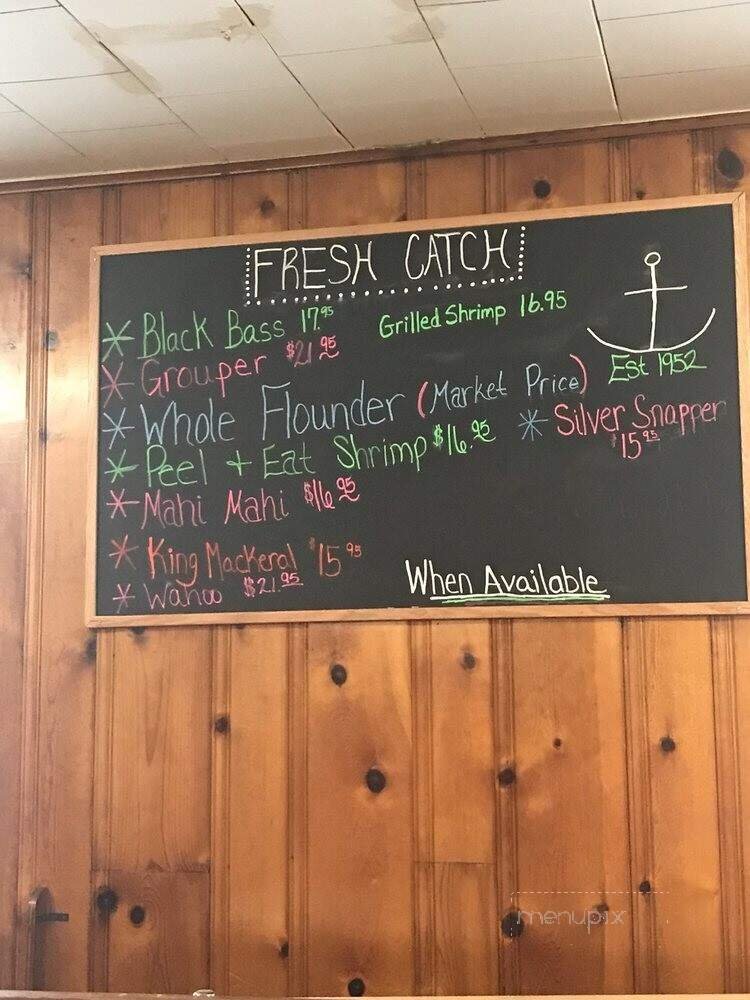 FRESH CATCH
* Black Bass 17.95
Grilled Shrimp 16.95
* Grouper $21.95
Est 1952
* Whole Flounder (Market Price)
* Silver Snapper
$15.95
* Peel + Eat Shrimp $16.95
* Mahi Mahi $16.95
* King Mackeral $15.95
* Wahoo $21.95
When Available
menupix